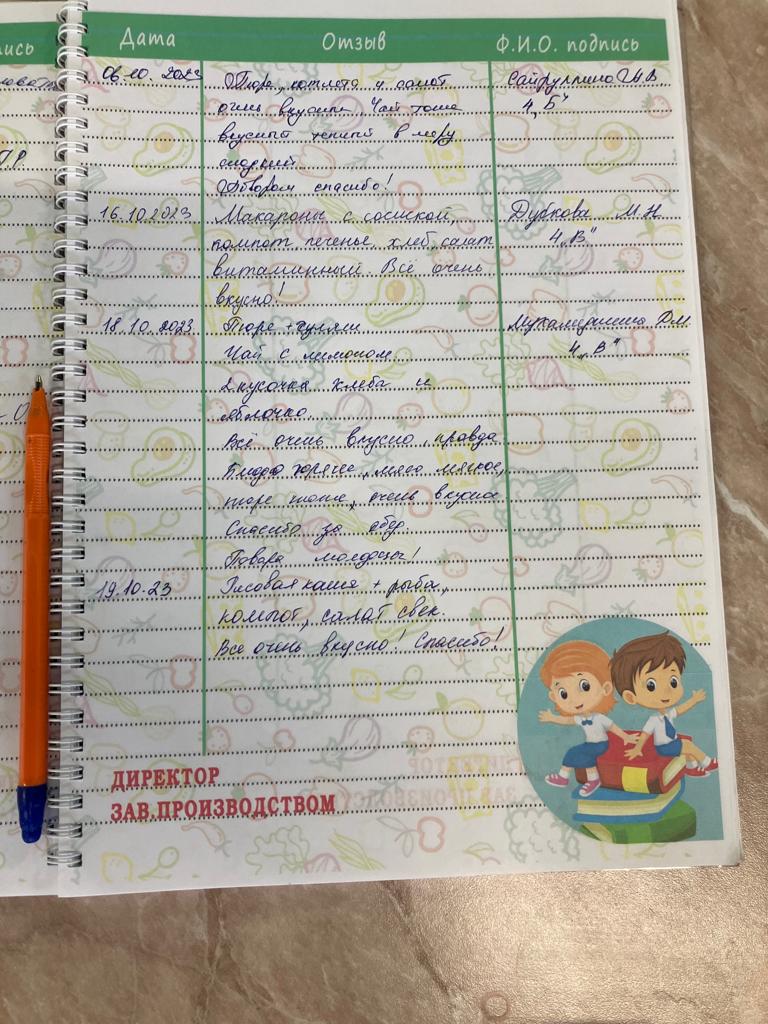 Дата Отзыв Ф.И.О. подпись
06.10.2023 Пюре, котлета и салат
очень вкусные. Чай тоже 4 „Б"
вкусный теплый в меру
сладкий.
Поварам спасибо!
16.10.2023 Макароны с сосиской, Дубкова М.Н.
компот, печенье, хлеб, салат 4 „В"
витаминный. Всё очень
вкусно!
18.10.2023 Пюре + гуляш
Чай с лимоном. 4 „В"
2 кусочка хлеба и
яблочко.
Всё очень вкусно, правда
Блюдо горячее, мясо мягкое,
пюре тоже, очень вкусно
Спасибо за обед.
Повара молодцы!
19.10.23 Рисовая каша + рыба,
компот, салат свек.
Все очень вкусно! Спасибо!
ДИРЕКТОР
ЗАВ.ПРОИЗВОДСТВОМ